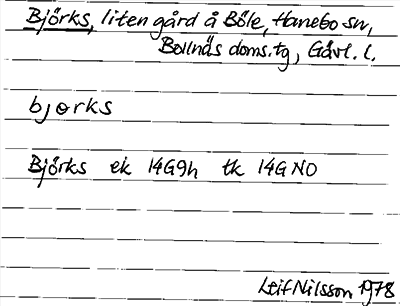 Björks, liten gård å Böle, Hanebo sn,
Bollnäs doms.tg, Gävl. l.
bjørks
Björks ek 14G9h tk 14G NO
Leif Nilsson 1978